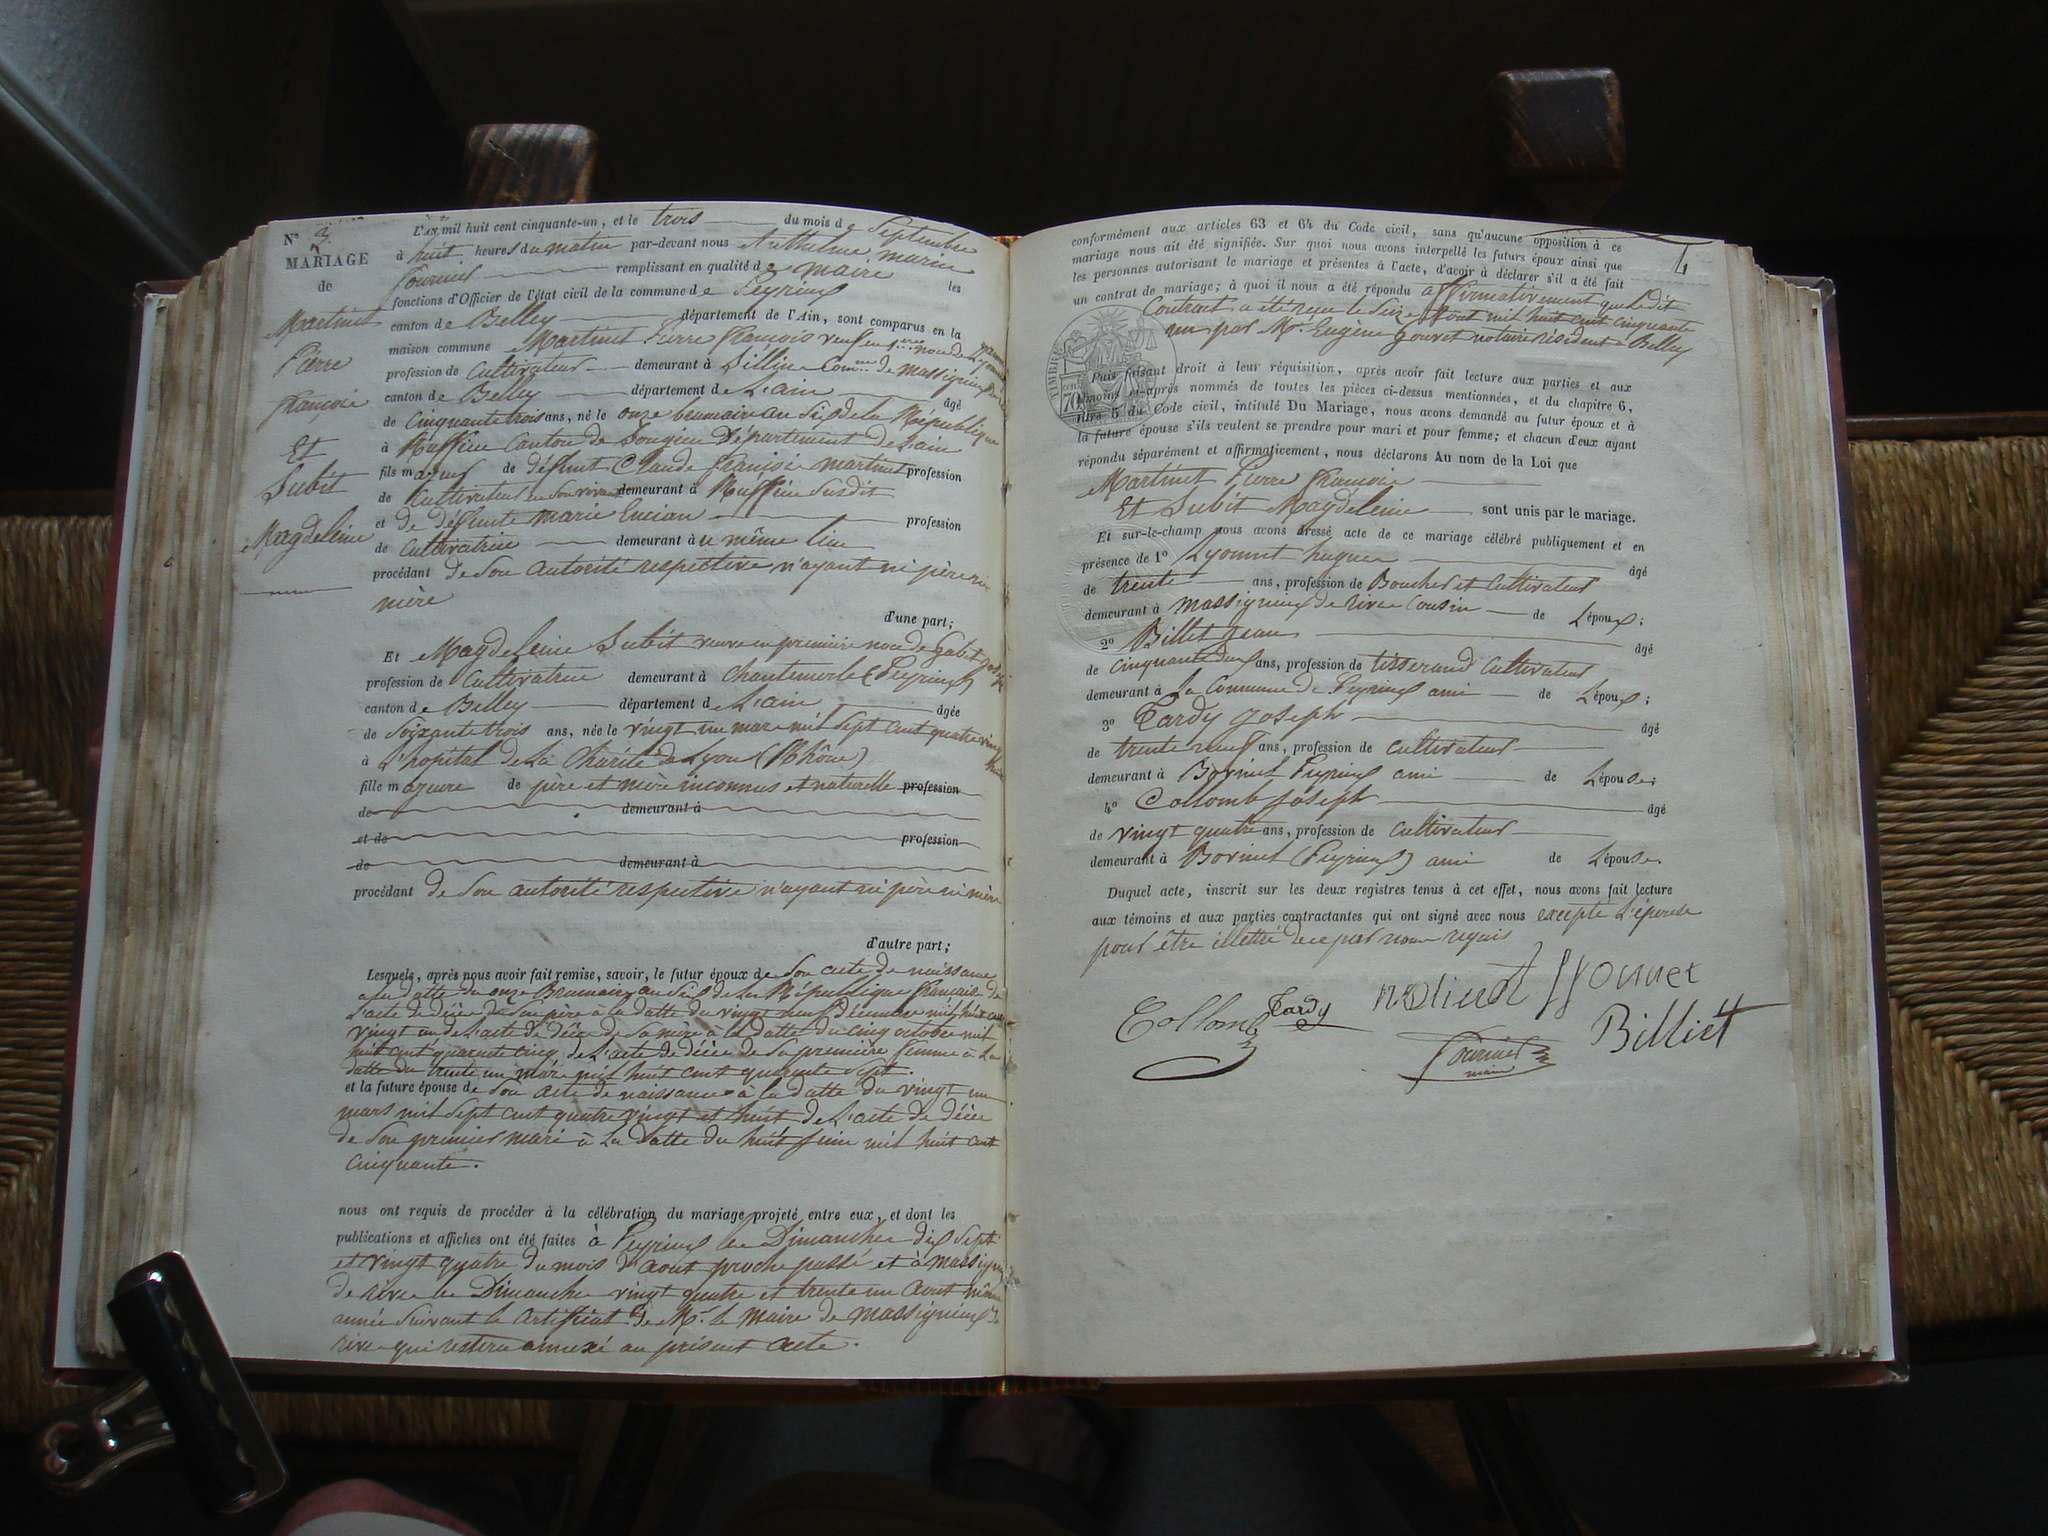 N° 3
MARIAGE
de
Martinet
Pierre
françois
Et
Subit
Magdeleine
L'AN mil huit cent cinquante-un, et le trois du mois de Septembre
à huit heures du matin par-devant nous Anthelme marin
fournier remplissant en qualité de maire les
fonctions d'Officier de l'état civil de la commune de Peyrieux
canton de Belley département de l'Ain, sont comparus en la
maison commune Martinet Pierre françois veuf en noce de
profession de Cultivateur demeurant à Sillin Com.ne de massignieux
canton de Belley département de L'ain âgé
de Cinquante trois ans, né le onze brumaire an Six de la République
à Ruffieu Canton de Songieu Département de Lain
fils majeur de défunt Claude françois martinet profession
de Cultivateur en Son vivant demeurant à Ruffieu Susdit
et de défunte marie Eucian profession
de Cultivatrice demeurant au même lieu
procédant de Son autorité respective n'ayant ni père ni
mère
d'une part;
Et Magdeleine Subit veuve en première noce de Gabet
profession de Cultivatrice demeurant à chantemerle (Peyrieux)
canton de Belley département de L'ain âgée
de Soixante trois ans, née le vingt un mars mil sept cent quatre vingt huit
à l'hopital de La Charité de Lyon (Rhône)
fille majeure de père et mère inconnus et naturelle profession
de demeurant à
et de profession
de demeurant à
procédant de Son autorité respective n'ayant ni père ni mère
d'autre part;
Lesquels, après nous avoir fait remise, savoir, le futur époux de Son acte de naissance
a la datte du onze Brumaire an Six de La République française de
L'acte de décès de Son père à la datte du vingt neuf Décembre mil huit cent
vingt un de L'acte de décès de Sa mère à la datte du cinq octobre mil
huit cent quarante cinq, de L'acte de décès de Sa première femme à La
datte du trente un mars mil huit cent quarante sept.
et la future épouse de Son acte de naissance à la datte du vingt un
mars mil sept cent quatre vingt et huit de L'acte de décès
de Son premier mari à La datte du huit juin mil huit cent
cinquante.
nous ont requis de procéder à la célébration du mariage projeté entre eux, et dont les
publications et affiches ont été faites à Peyrieux les Dimanches dix Sept
et vingt quatre du mois d'aout proche passé et à massignieu
de rives les Dimanches vingt quatre et trente un aout même
année Suivant le certificat de Mr. le Maire de massignieux de
rives qui restera annexé au présent acte.
4
conformément aux articles 63 et 64 du Code civil, sans qu'aucune opposition à ce
mariage nous ait été signifiée. Sur quoi nous avons interpellé les futurs époux ainsi que
les personnes autorisant le mariage et présentes à l'acte, d'avoir à déclarer s'il a été fait
un contrat de mariage; à quoi il nous a été répondu affirmativement que le dit
Contrat a été reçu le Seize aout mil huit cent cinquante
un par Mr. Eugène gouvet notaire résident à Belley
TIMBRE
70
Puis faisant droit à leur réquisition, après avoir fait lecture aux parties et aux
témoins ci-après nommés de toutes les pièces ci-dessus mentionnées, et du chapitre 6,
titre 5 du Code civil, intitulé Du Mariage, nous avons demandé au futur époux et à
la future épouse s'ils veulent se prendre pour mari et pour femme; et chacun d'eux ayant
répondu séparément et affirmativement, nous déclarons Au nom de la Loi que
Martinet Pierre françois
Et Subit Magdeleine sont unis par le mariage.
Et sur-le-champ nous avons dressé acte de ce mariage célébré publiquement et en
présence de 1° Lyonnet hugues âgé
de trente ans, profession de Boucher et Cultivateur
demeurant à massignieux de rives Cousin de L'époux;
2° Billet Jean âgé
de cinquante deux ans, profession de tisserand Cultivateur
demeurant à La Commune de Peyrieux ami de L'époux;
3° Tardy Joseph âgé
de trente neuf ans, profession de cultivateur
demeurant à Borinet Peyrieux ami de L'épouse;
4° Collomb Joseph âgé
de vingt quatre ans, profession de cultivateur
demeurant à Borinet (Peyrieux) ami de L'épouse.
Duquel acte, inscrit sur les deux registres tenus à cet effet, nous avons fait lecture
aux témoins et aux parties contractantes qui ont signé avec nous excepté L'épouse
pour être illettré de ce par nous requis
Collomb Tardy Lyonnet
Fournier Billiet
maire